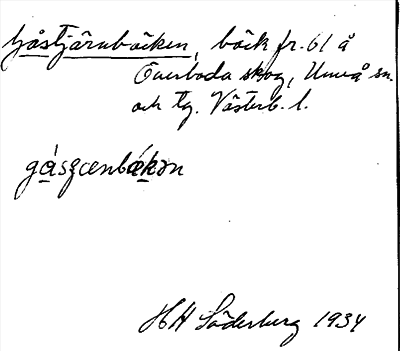 Gåstjärnbäcken, bäck fr. 61 å
Överboda skog, Umeå sn.
och tg. Västerb. l.
gásꞔenbǽkən
HH Söderberg 1934